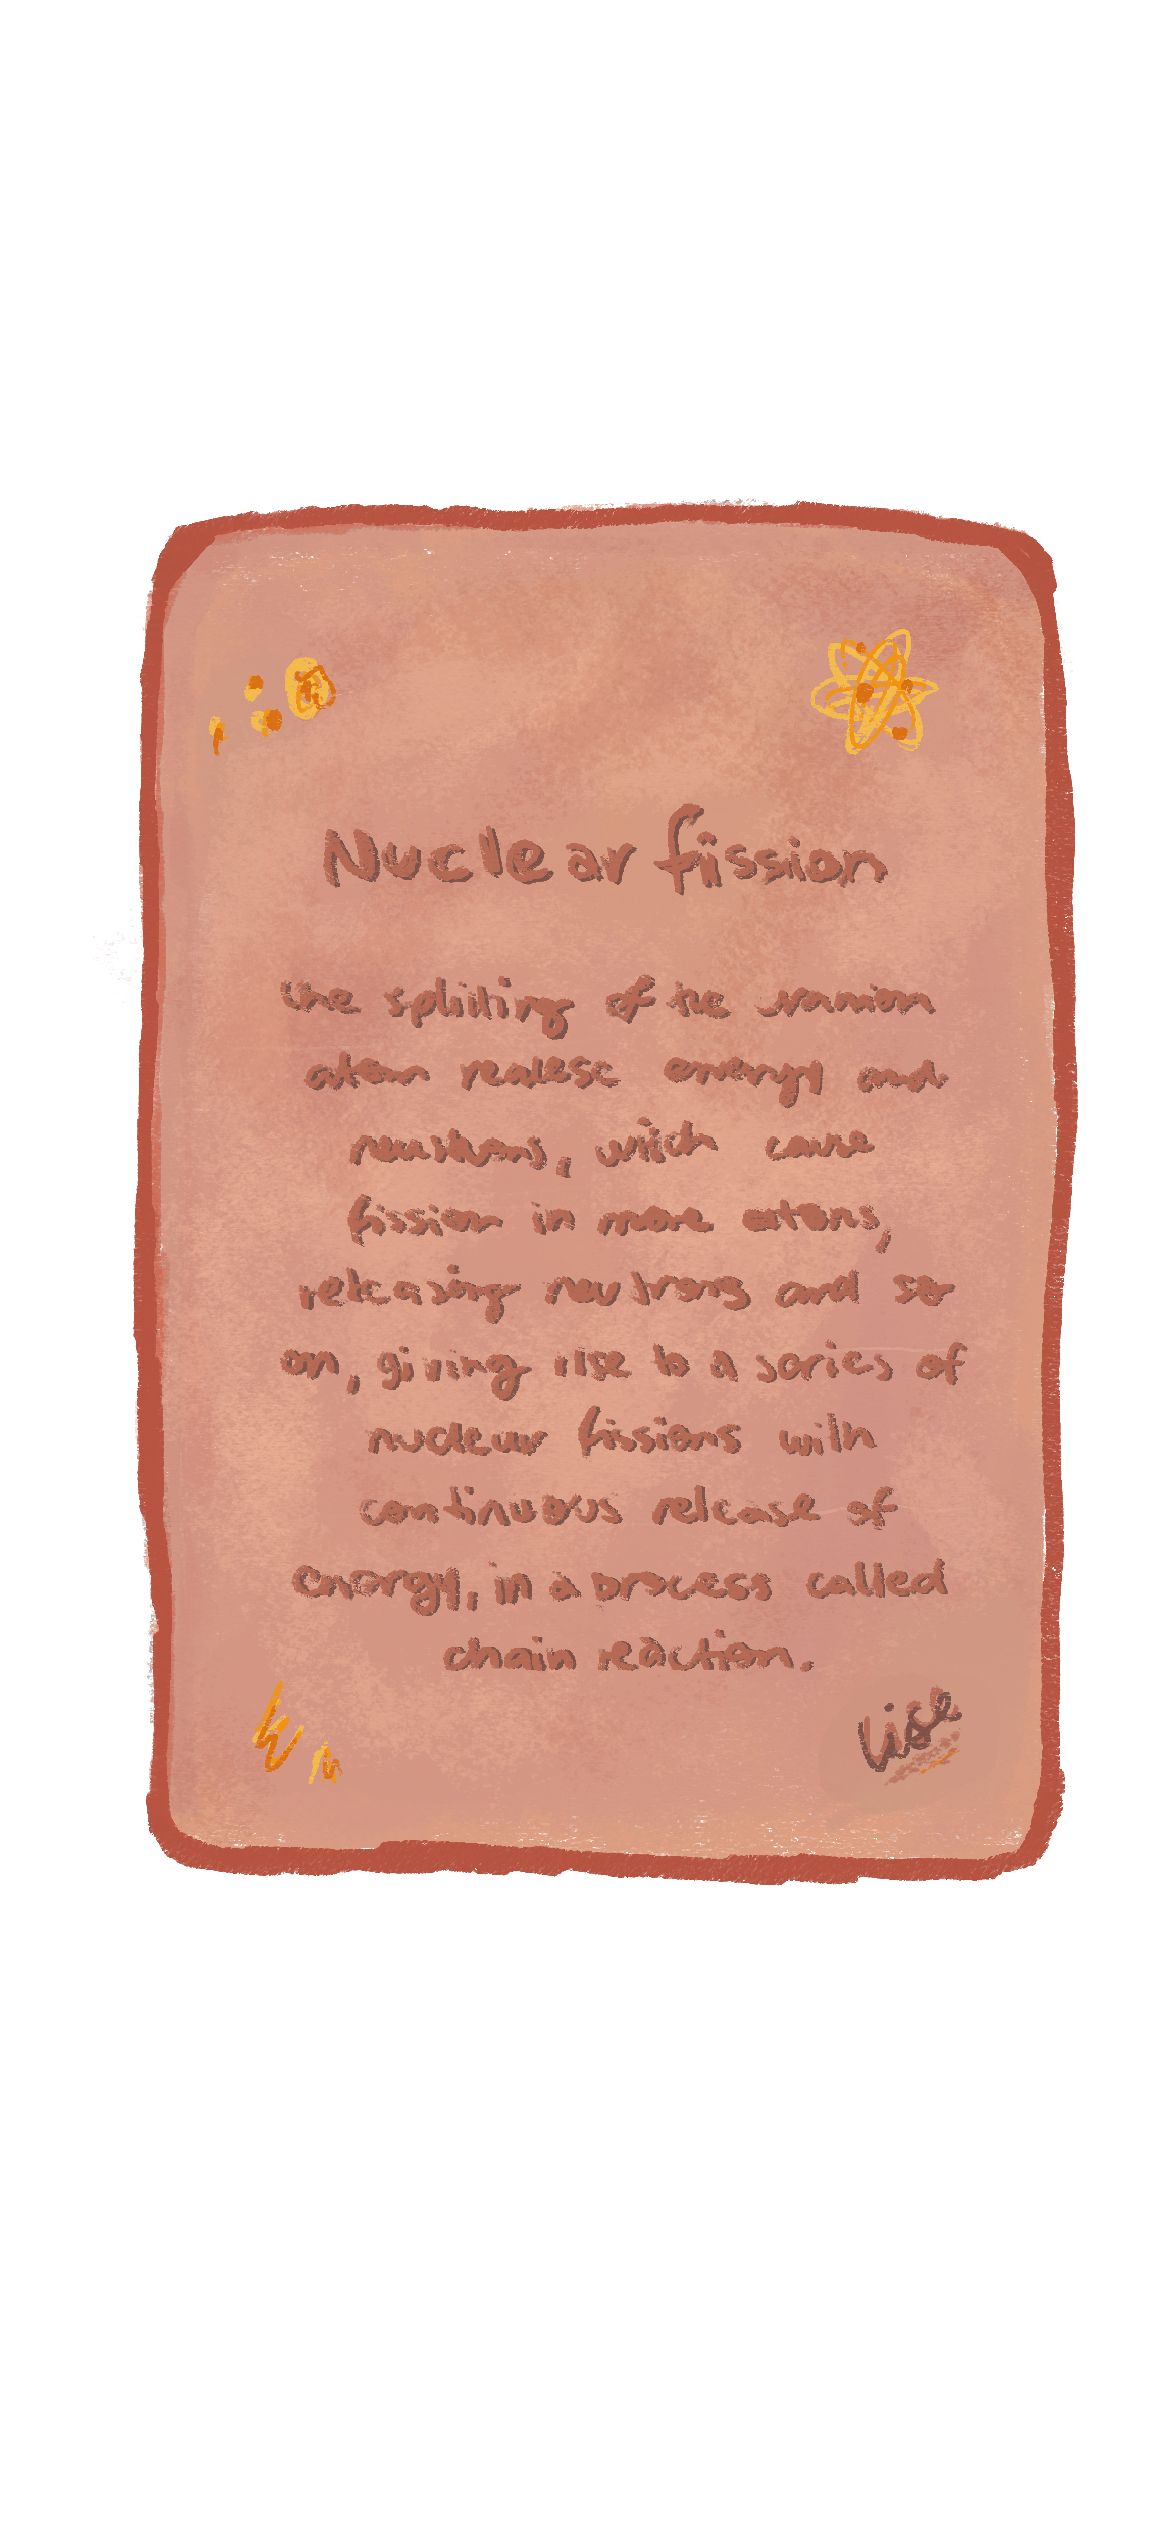 Nuclear fiission
the spliiting of the uranium
atom realese energy and
neutrons, which cause
fission in more atoms,
releasing neutrons and so
on, giving rise to a series of
nuclear fissions with
continuous release of
energy, in a process called
chain reaction.
Lise